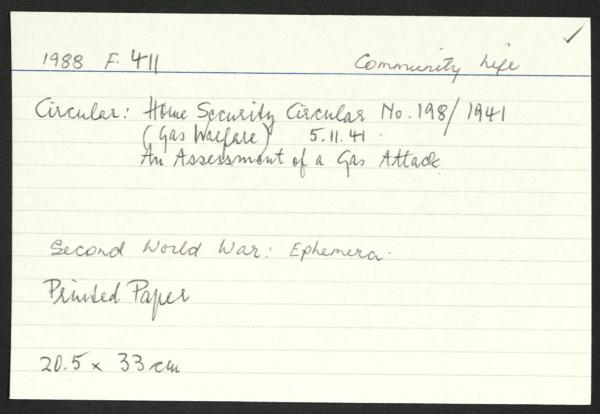 1988 F. 411 Community Life
Circular: Home Security Circular No. 198/1941
(Gas Warfare) 5.11.41.
An Assessment of a Gas Attack
Second World War: Ephemera.
Printed Paper
20.5 x 33 cm